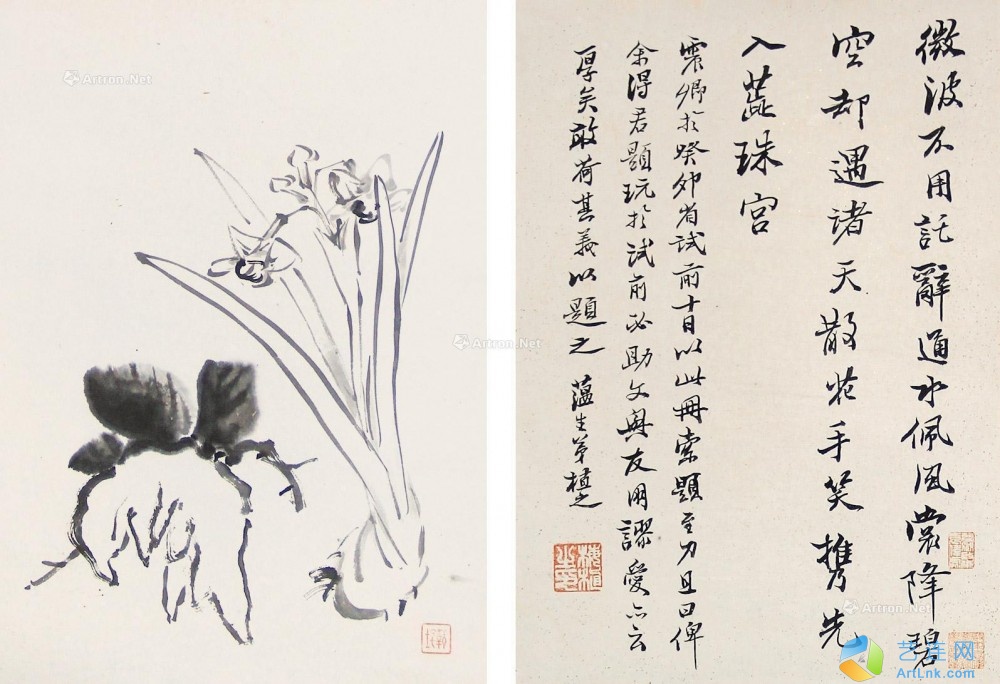 微波不用託辭通水佩風裳降碧
空却遇诸天散花手笑攜先
入蕊珠宫
霞卿於癸卯省試前十日以此冊索題至力且曰俾
余得君題玩於試前必助文興友朋謬愛亦云
厚矣敢荷其義以題之 蕴生弟植之
梅植之印
Artron.Net
Artron.Net
Artron.Net
艺连网
ArtLnk.com